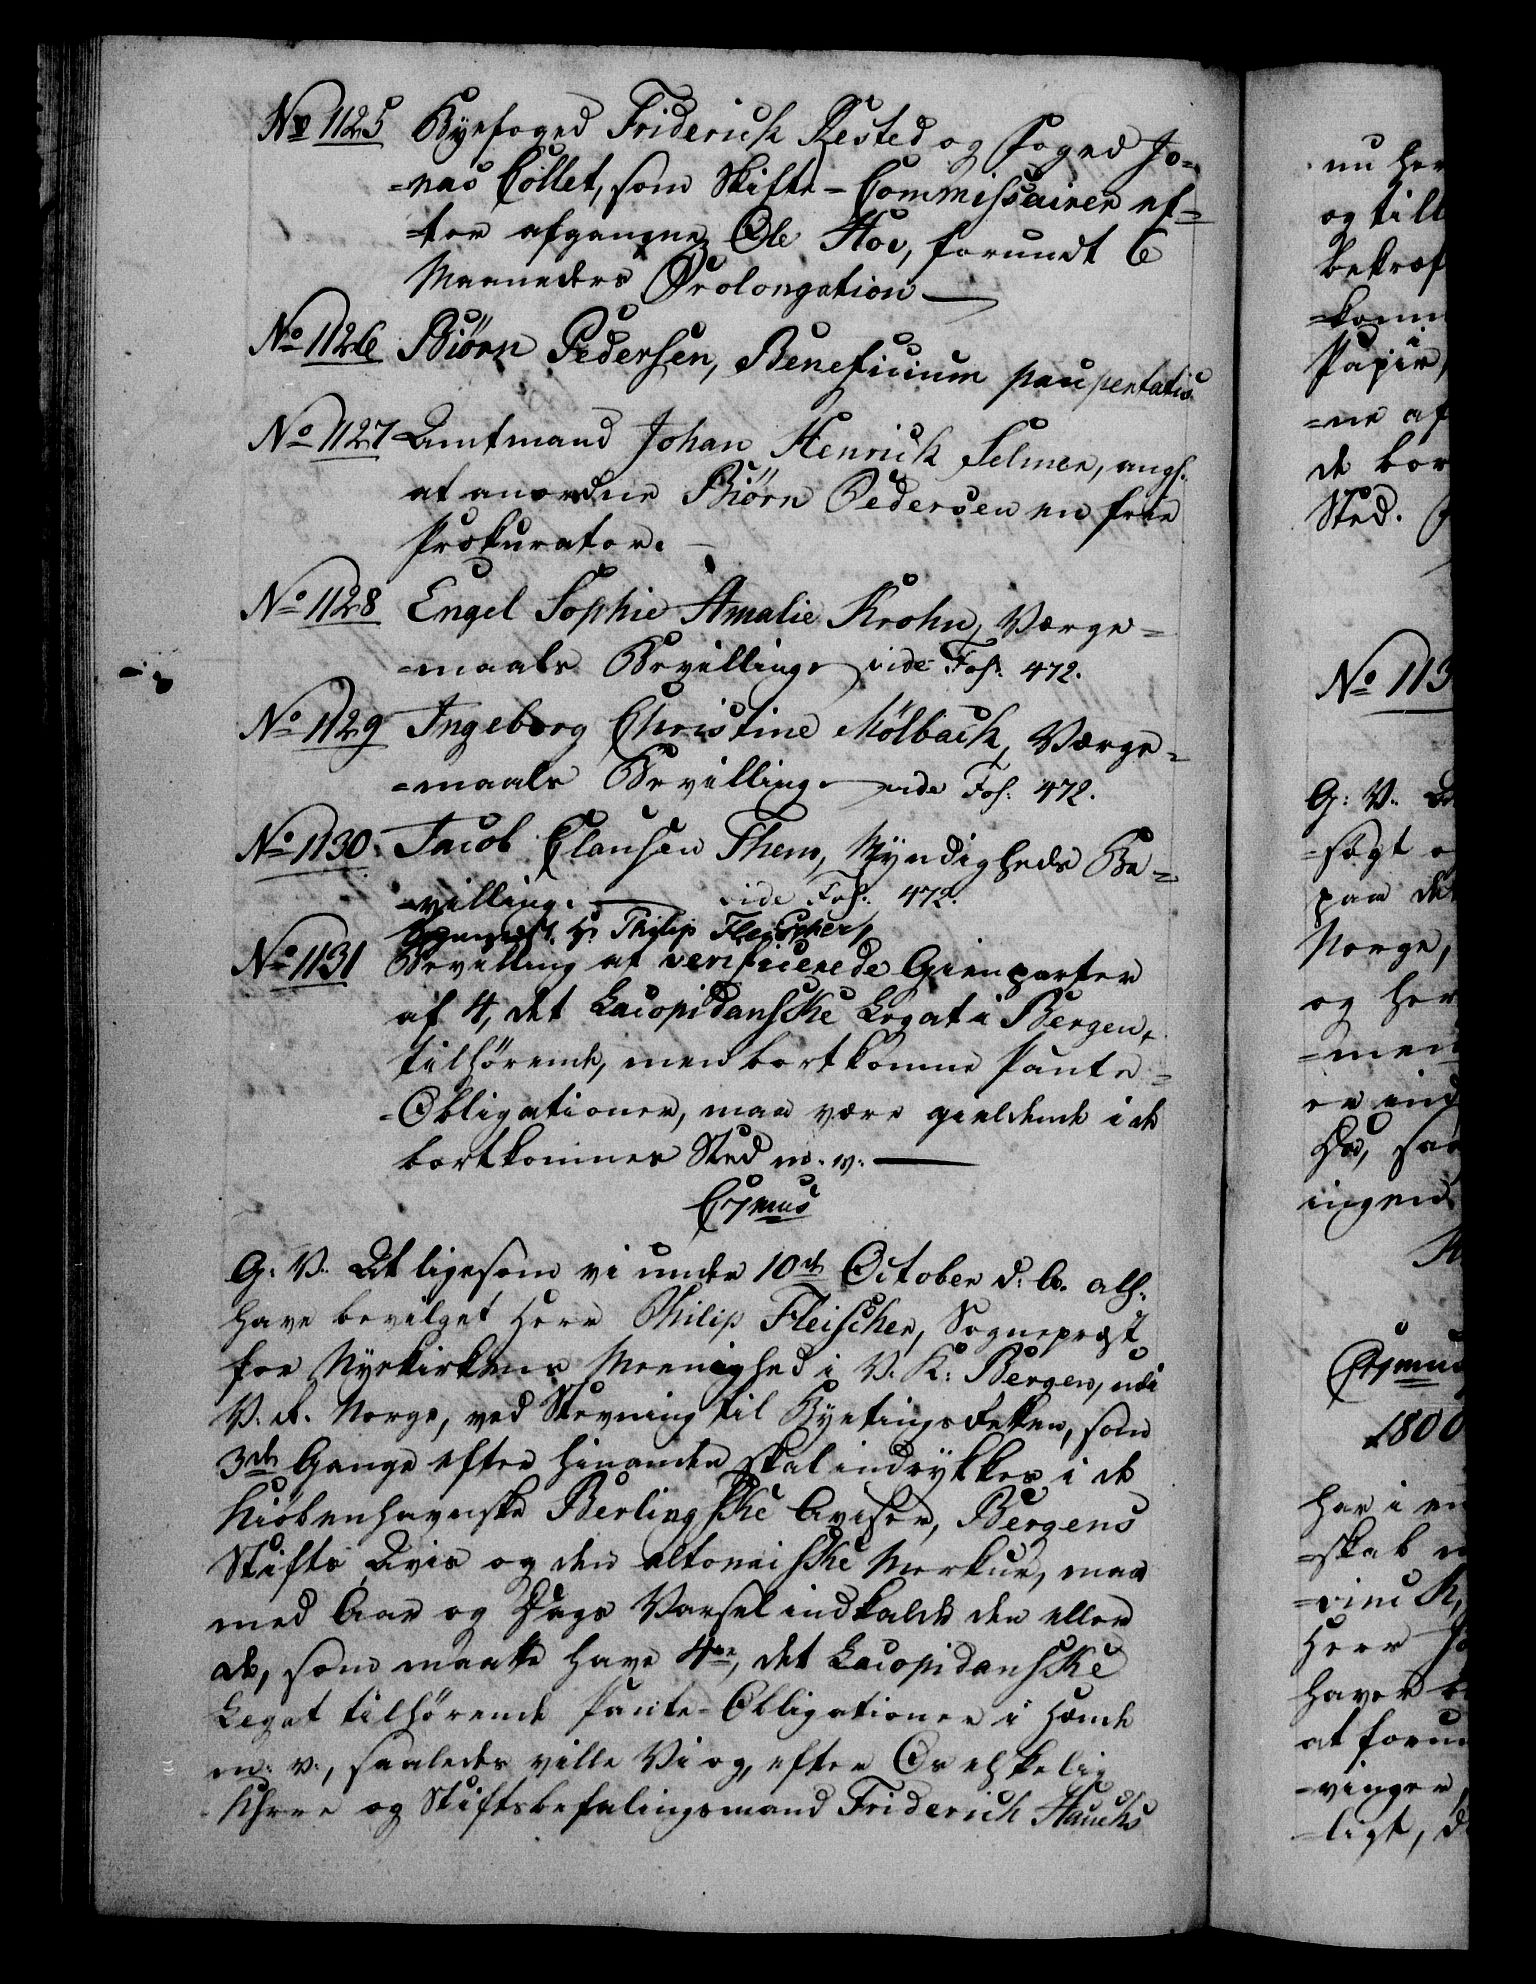 No 1125 Byefoged Friderich Rested og Foged Jo-
-nas Collet, som Skifte-Commissairer ef-
-ter afgangne Ole Hoe, forundt 6
Maaneders Prolongation
No 1126 Biørn Pedersen, Beneficium paupertatis
No 1127 Amtmand Johan Henrich Selmer, angl.
at anordne Biørn Pedersen en frie
Prokurator.
No 1128 Engel Sophie Amalie Krohn, Værge-
-maals Bevilling. vide Fol. 472.
No 1129 Ingeborg Christine Mølbach, Værge-
-maals Bevilling. vide Fol: 472.
No 1130 Jacob Clausen Them, Myndigheds Be-
-villing. vide Fol: 472.
Sognepræst Hr Philip Fleischer,
No 1131 Bevilling at verificerede Gienparter
af 4, det Lacopidanske Legat i Bergen,
tilhørende, men bortkomne Pante-
-Obligationer, maa være gieldende i de
bortkomnes Sted m. v.
C7mus
G: V. At ligesom vi under 10de October d: A. allr.
have bevilget Herr Philip Fleischer, Sognepræst
for Nyekirkens Meenighed i V. K: Bergen, udi
V. R. Norge, ved Stevning til Byetingsretten, som
3de Gange efter hinanden skal indrykkes i de
Kiøbenhavnske Berlingske Aviser, Bergens
Stifts Avis og den altonaiske Merkur, maa
med Aar og Dags Varsel indkalde den eller
de, som maatte have 4re, det Lacopidanske
Legat tilhørende Pante-Obligationer i Hænde
m: v:, saaledes ville Vi og, efter Os elskelig
Hrre og Stiftsbefalingsmand Friderich Hauchs
nu her
og till
bekræf
-komm
Papir,
-ne af
de bor
Sted.
No 113
G: V.
-søgt
paa det
Norge,
og her
-men
er ind
saa
ingen
C7mus
1800
har i en
-skab
Herr
haver
at forun
-vinger,
-ligt,